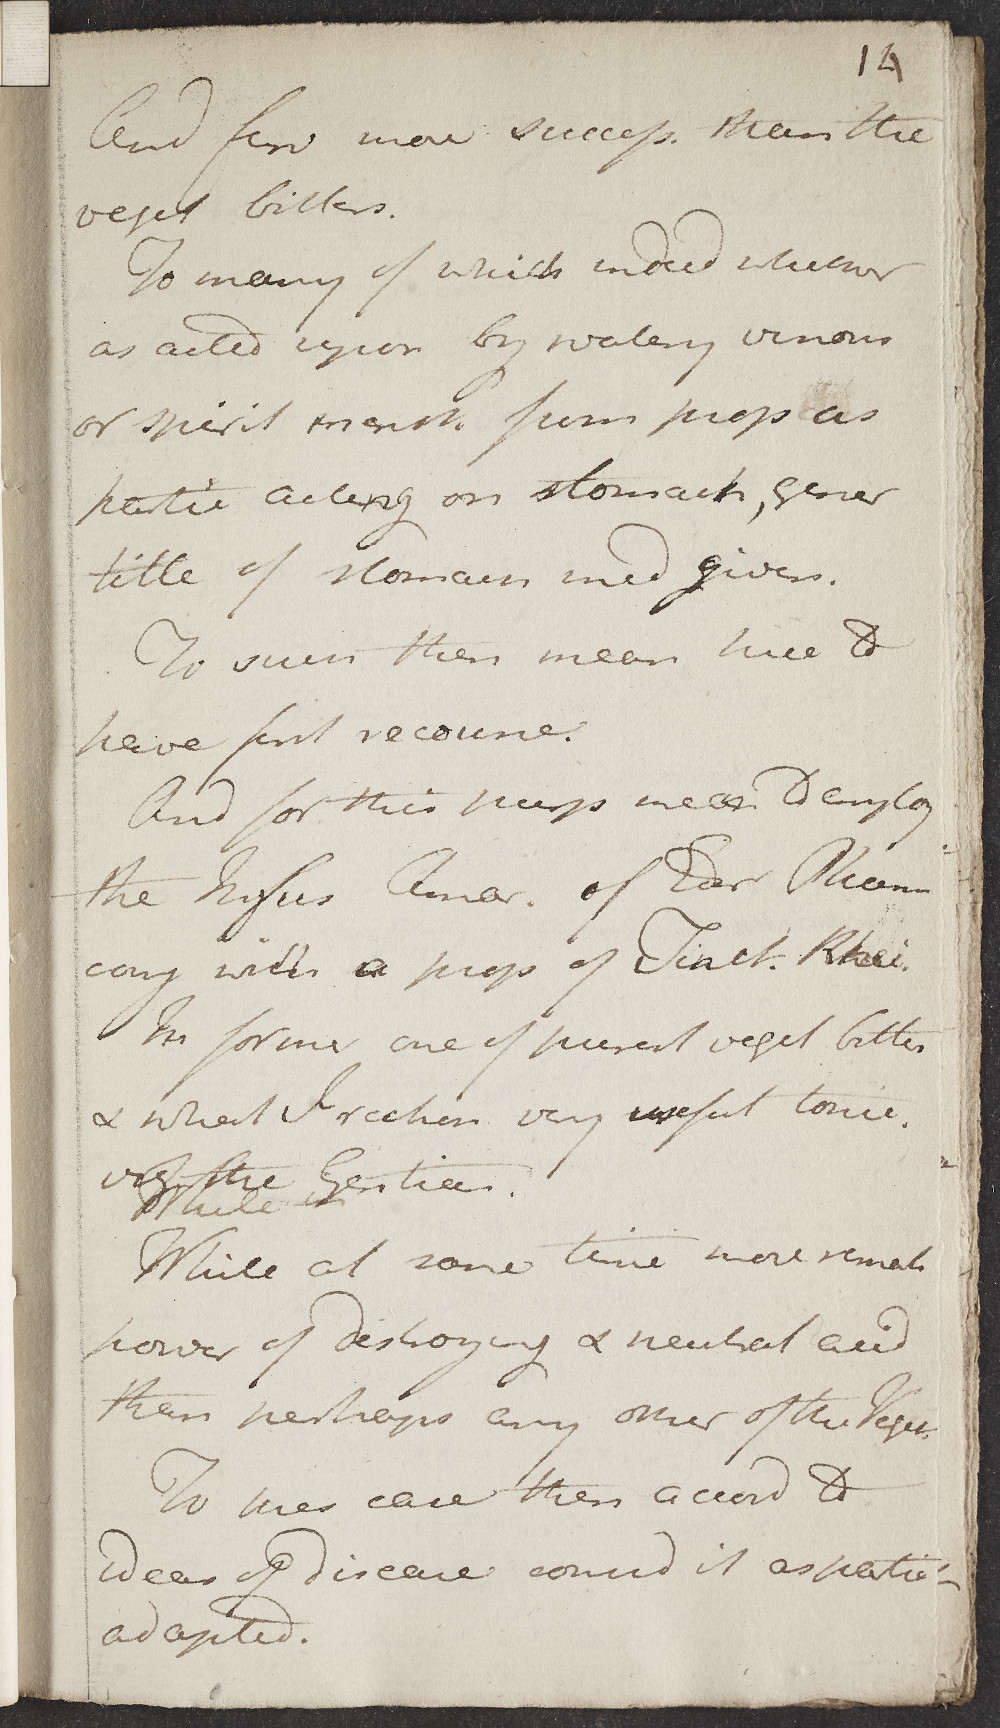 14
And few more success. than the
veget bitters.
To many of which indeed whether
as acted upon by watery vinous
or spirit menst. from prop as
partic acting on stomach, gener
title of stomach med given.
To such then mean here to
have first recourse.
And for this purp mean to employ
the Infus Amar. of Edin Pharm
conj with a prop of Tinct. Rhei.
In former one of purest veget bitter
& what I reckon very useful tonic.
viz. the Gentian.
While in
While at same time more remark
power of destroying & neutral acid
than perhaps any other of the Veget.
To pres case then accord to
ideas of disease consid it as partic
adapted.